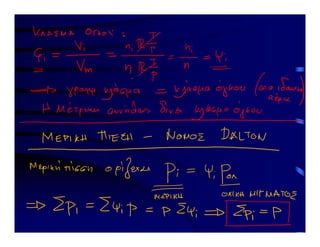 Κλάσμα όγκου :
φᵢ = Vᵢ / Vₘ = (nᵢ R T/P) / (n R T/P) = nᵢ / n = ψᵢ
→ γραμμ κλάσμα = κλάσμα όγκου (στα ιδανικά αέρια)
Η μέτρηση συνήθως δίνει κλάσμα όγκου
ΜΕΡΙΚΗ ΠΙΕΣΗ – ΝΟΜΟΣ DALTON
Μερική πίεση ορίζεται Pᵢ = ψᵢ Pολ
ΜΕΡΙΚΗ ΟΛΙΚΗ ΜΙΓΜΑΤΟΣ
⇒ Σpᵢ = Σψᵢ P = P Σψᵢ ⇒ Σpᵢ = P